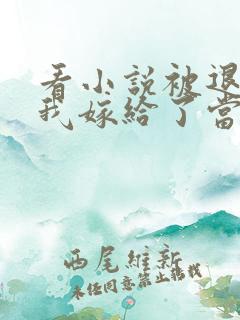 看小說被退
我嫁給了當
西尾維新
未經同意禁止轉載